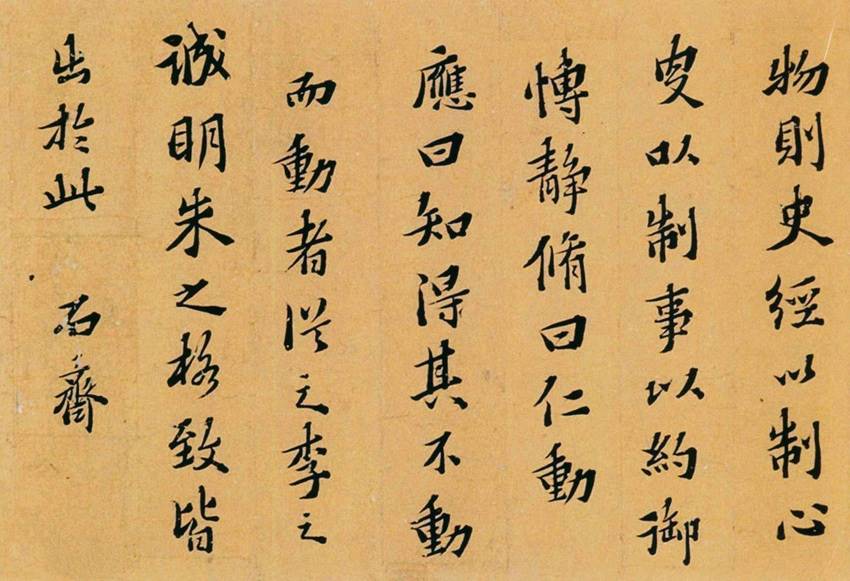 物則史經以制心
叓以制事以約御
愽靜脩曰仁動
應曰知得其不動
而動者從之李之
誠明朱之格致皆
出於此 齋